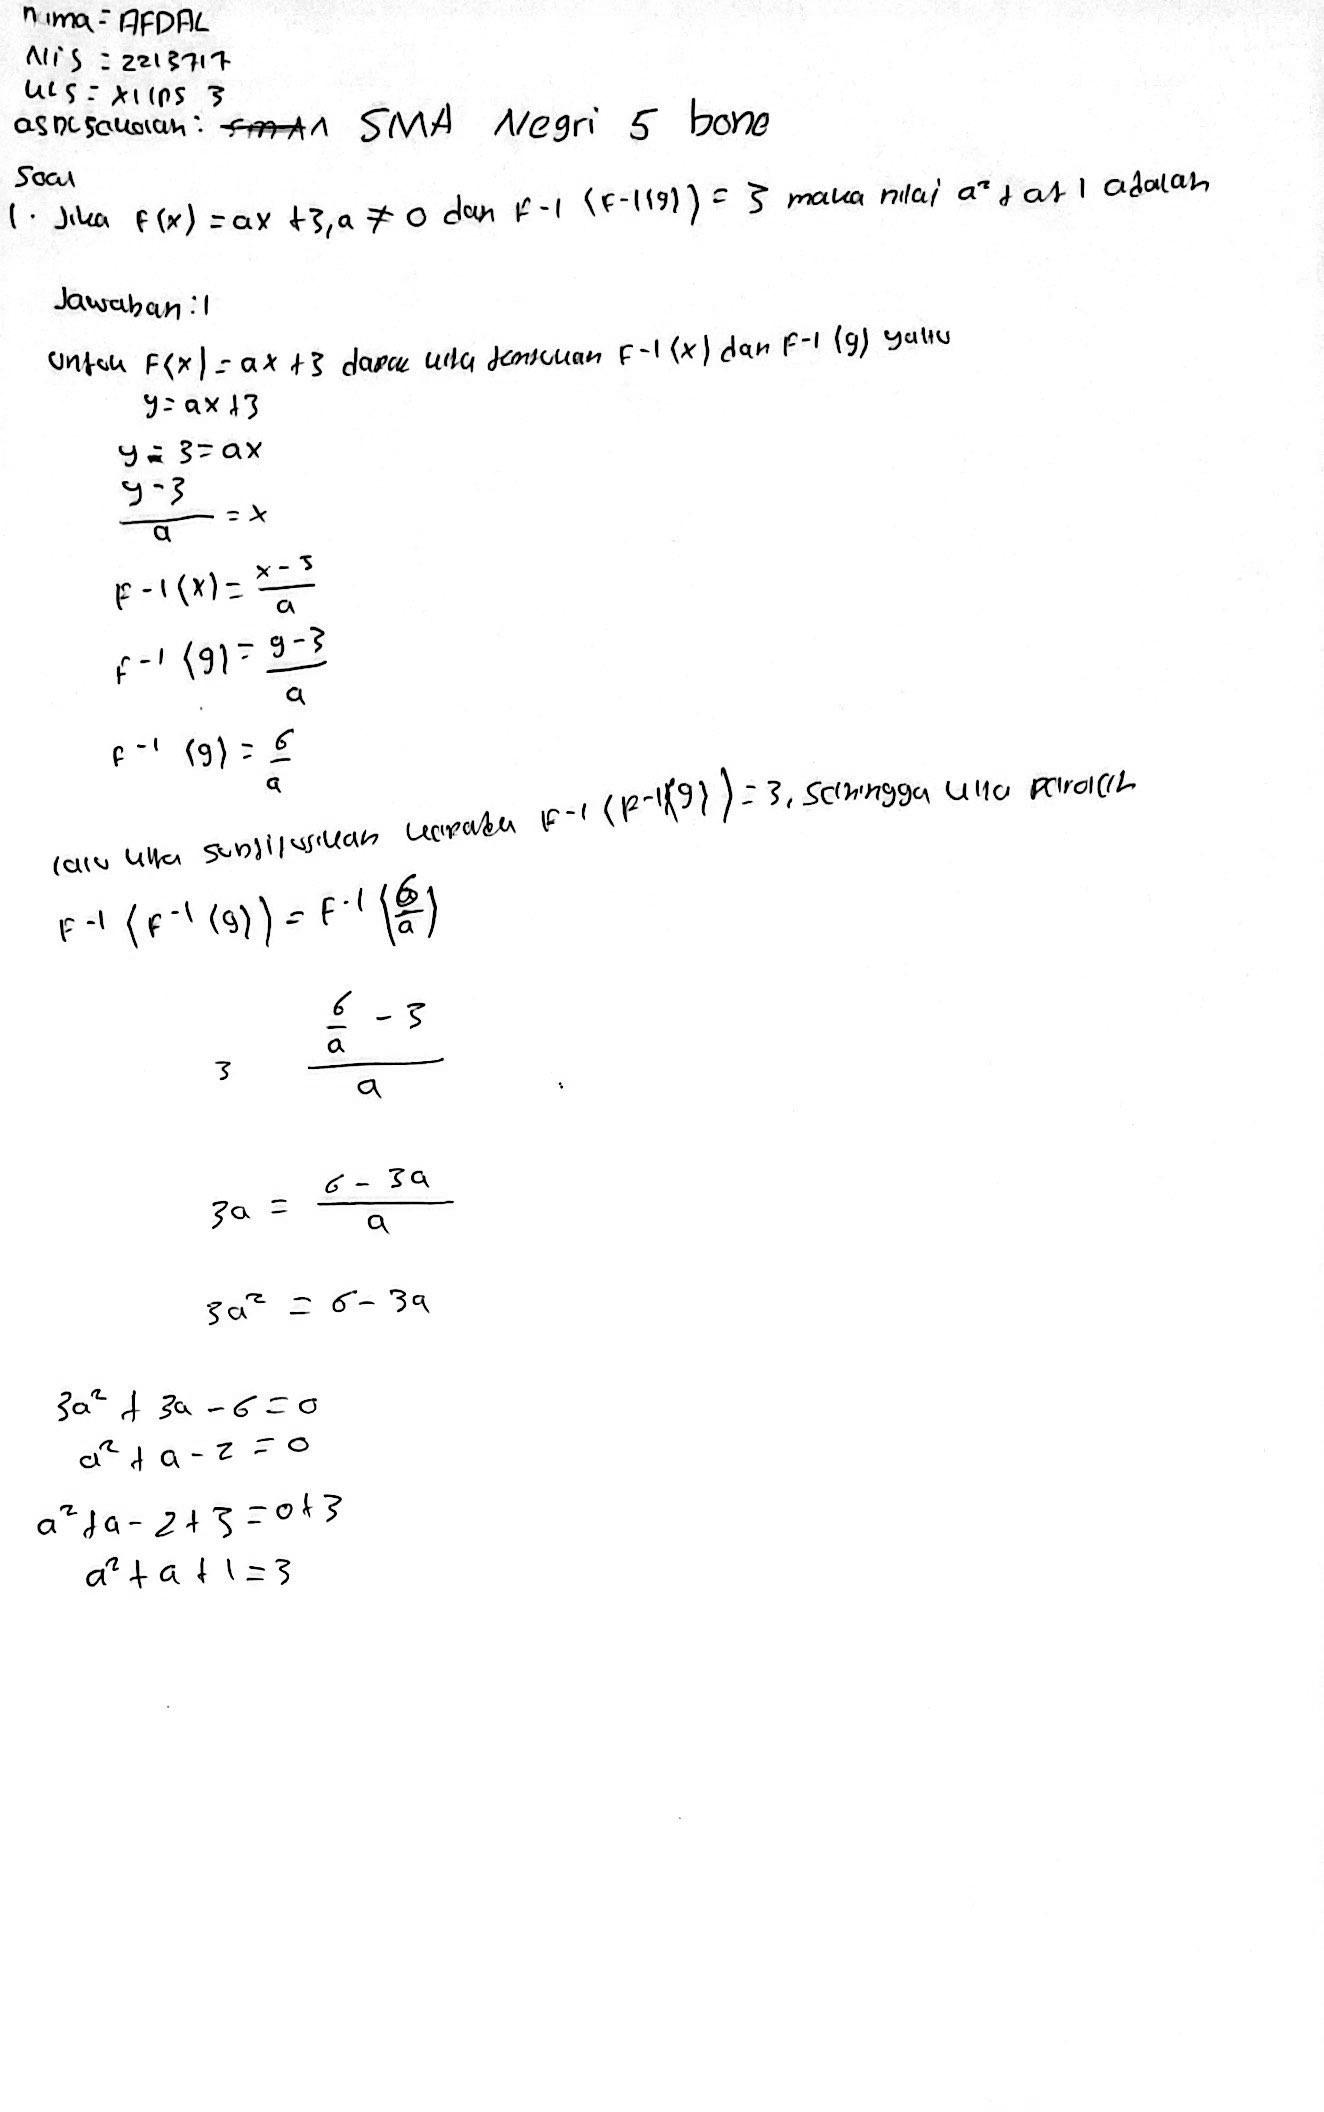 nama = AFDAL
Nis = 2213717
kls = XI IPS 3
SMA Negri 5 bone
Soal
1. Jika F(x) = ax + 3, a ≠ 0 dan F-1 (F-1(9)) = 3 maka nilai a² + a + 1 adalah
Jawaban : 1
untuk F(x) = ax + 3 dapat kita temtukan F-1 (x) dan F-1 (9) yaitu
y = ax + 3
y - 3 = ax
y - 3 / a = x
F-1 (x) = x - 3 / a
F-1 (9) = 9 - 3 / a
F-1 (9) = 6 / a
lalu kita subtitusikan kepada F-1 (F-1(9)) = 3, sehingga kita peroleh
F-1 (F-1 (9)) = F-1 (6/a)
3 6/a - 3 / a
3a = 6 - 3a / a
3a² = 6 - 3a
3a² + 3a - 6 = 0
a² + a - 2 = 0
a² + a - 2 + 3 = 0 + 3
a² + a + 1 = 3